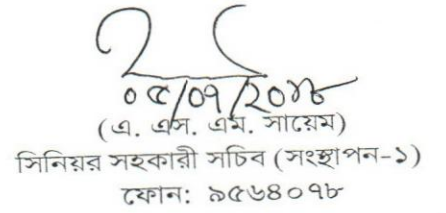 ০৫/০৭/২০১৮
(এ. এস. এম. সায়েম)
সিনিয়র সহকারী সচিব (সংস্থাপন-১)
ফোন: ৯৫৬৪০৭৮